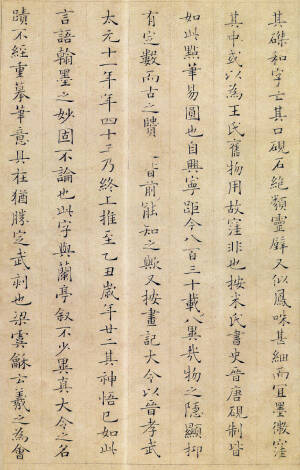 其磔和字亡其口硯石絶類靈壁又似鳳咮甚細而宜墨微窪
其中或以為王氏舊物用故窪非也按米氏書史晉唐硯制皆
如此點筆易圓也自興寧距今八百三十載八異哉物之隱顯抑
有定數而古之賾前能知之歟又按畫記大令以晉孝武
太元十一年年四十三乃終上推至乙丑歲年廿二其神悟已如此
言語翰墨之妙固不論也此字與蘭亭叙不少異真大令之名
蹟不經重摹筆意具在猶勝定武刻也梁虞龢云羲之為會